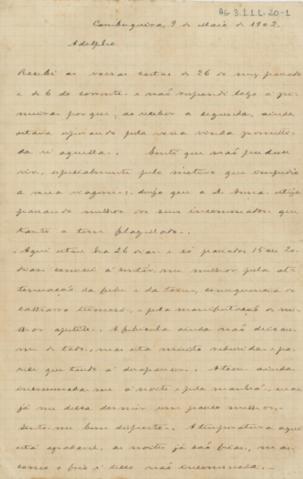 AG 3.1.1.1.20-1
Cambuquira, 9 de Maio de 1902.
Adelphio
Recebi as vossas cartas de 26 do mez passado
e de 6 do corrente e não respondi logo a pri-
meira porque, ao receber a segunda, ainda
estava esperando pela vossa vinda
Sinto que não pudesse
vir, especialmente pelo motivo que impediu
a sua viagem; desejo que a D. Anna esteja
passando melhor os seus incommodos que
tanto a tem flagelado.
Aqui estou ha 26 dias e só passados 15 ou 20
dias comecei a sentir-me melhor pela at-
tenuação da febre e da tosse, consequencia do
catharro, e pela manifestação de me-
lhor apetite. A ainda não deixou-
me de todo, mas está muito reduzida e pa-
rece que tende a desapparecer. A tosse ainda
incommoda-me á noite e pela manhã, mas
já me deixa dormir um pouco melhor.
Sinto-me bem disposto. A temperatura aqui
está agradavel, as noites já são frias, mas
com o frio é secco não incommoda.